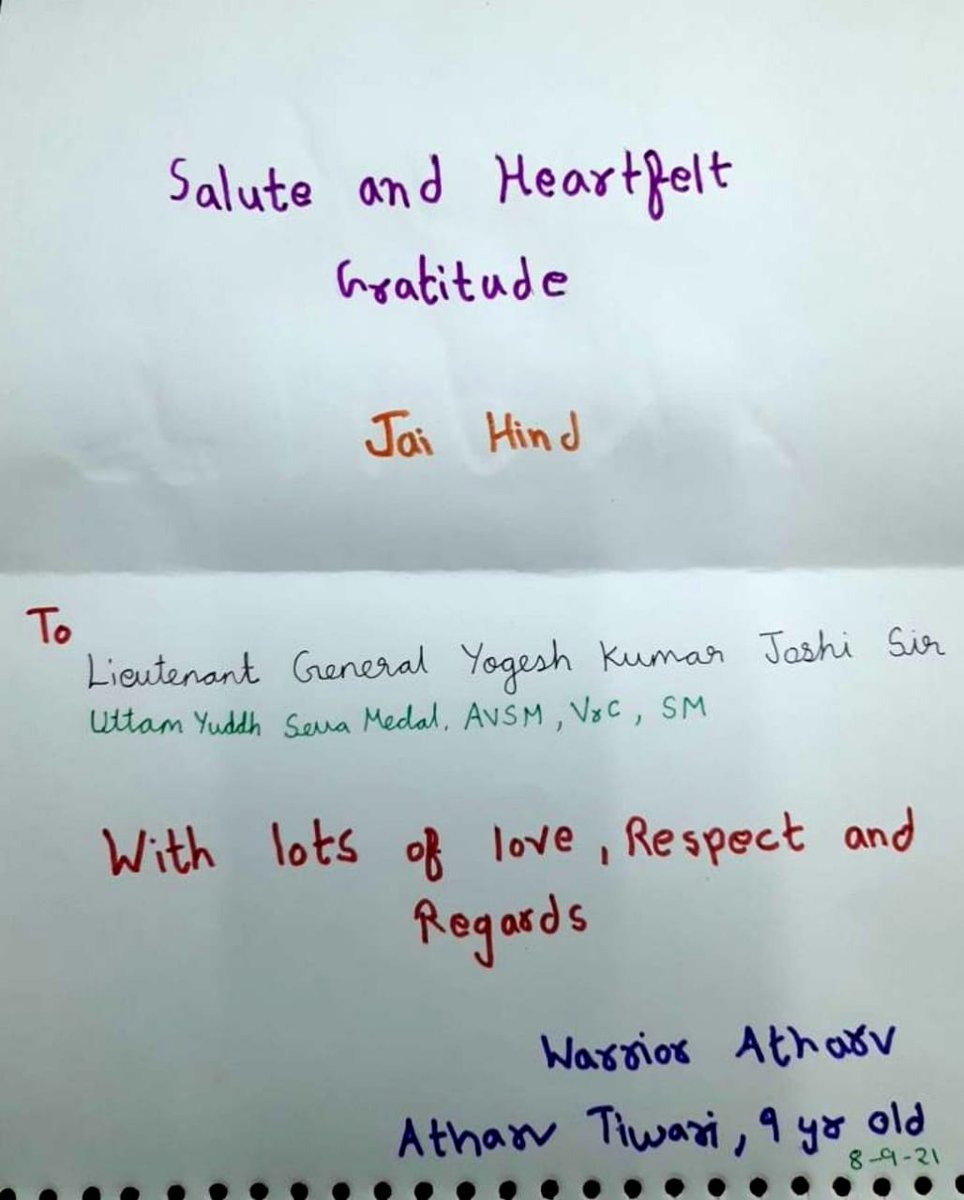 Salute and Heartfelt
Gratitude
Jai Hind
To
Lieutenant General Yogesh Kumar Joshi Sir
Uttam Yuddh Seva Medal, AVSM, VrC, SM
With lots of love, Respect and
Regards
Warrior Atharv
Atharv Tiwari, 9 yr old
8-9-21